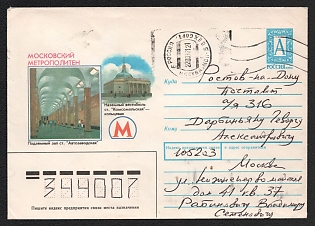 МОСКОВСКИЙ
МЕТРОПОЛИТЕН
Наземный вестибюль
ст. "Комсомольская" -
кольцевая
М
Подземный зал ст. "Автозаводская"
А
РОССИЯ
МОСКВА
Куда
Ростов-на-Дону
Почтамт
а/я 316
Кому
Александровичу
Индекс предприятия связи и адрес отправителя
105203
Москва
дом 41 кв. 37
Рабинович Владимир
Семёнович
344007
Пишите индекс предприятия связи места назначения